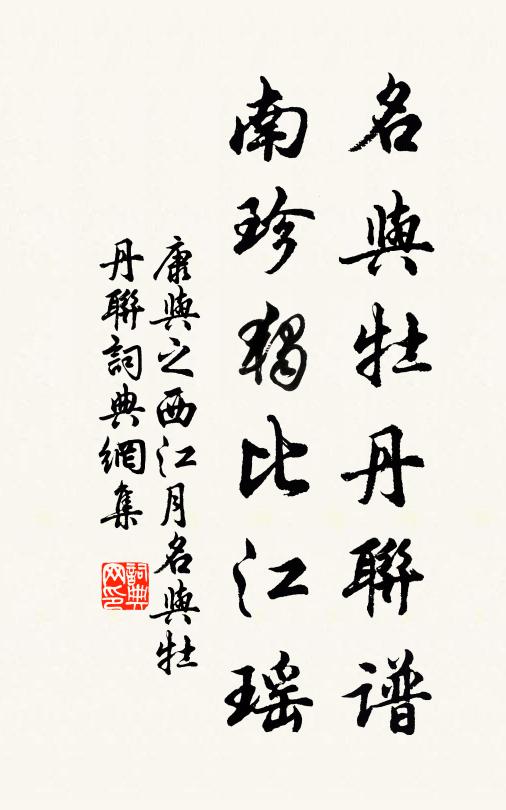 名與牡丹聯譜
南珍獨比江瑶
康與之西江月名與牡
丹聯詞典網集
詞典网印